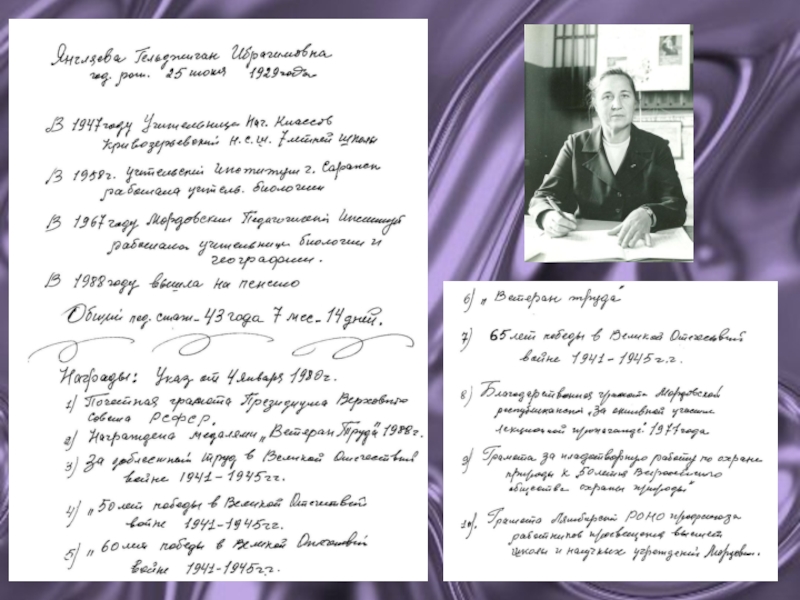 Янгляева Гельджиган Ибрагимовна
год рож. 25 июня 1929 года
В 1947 году Учительница Нач. Классов
Кривозерьевской Н.С.Ш. 7 летней школы
В 1958 г. учительский Институт г. Саранск
работала учитель. биологии
В 1967 году Мордовский Педагогический Институт
работала учительница биологии и
географии.
В 1988 году вышла на пенсию
Общий пед. стаж - 43 года 7 мес - 14 дней.
Награды: Указ от 4 января 1980 г.
1) Почетная грамота Президиума Верховного
Совета РСФСР.
2) Награждена медалями „Ветеран Труда" 1988 г.
3) За доблестный труд в Великой Отечествен
войне 1941-1945 гг.
4) „50 лет победы в Великой Отечествен
войне 1941-1945 гг.
5) „60 лет победы в Великой Отечествен
войне 1941-1945 г.г.
6) „Ветеран труда"
7) 65 лет победы в Великой Отечествен
войне 1941-1945 г.г.
8) Благодарственная грамота Мордовской
республиканской „За активное участие
лекционной пропаганде" 1977 года
9) Грамота за плодотворную работу по охране
природы к „50 летия Всероссийского
общества охраны природы"
10). Грамота Лямбирской РОНО профсоюза
работников просвещения высшей
школы и научных учреждений Мордовии.